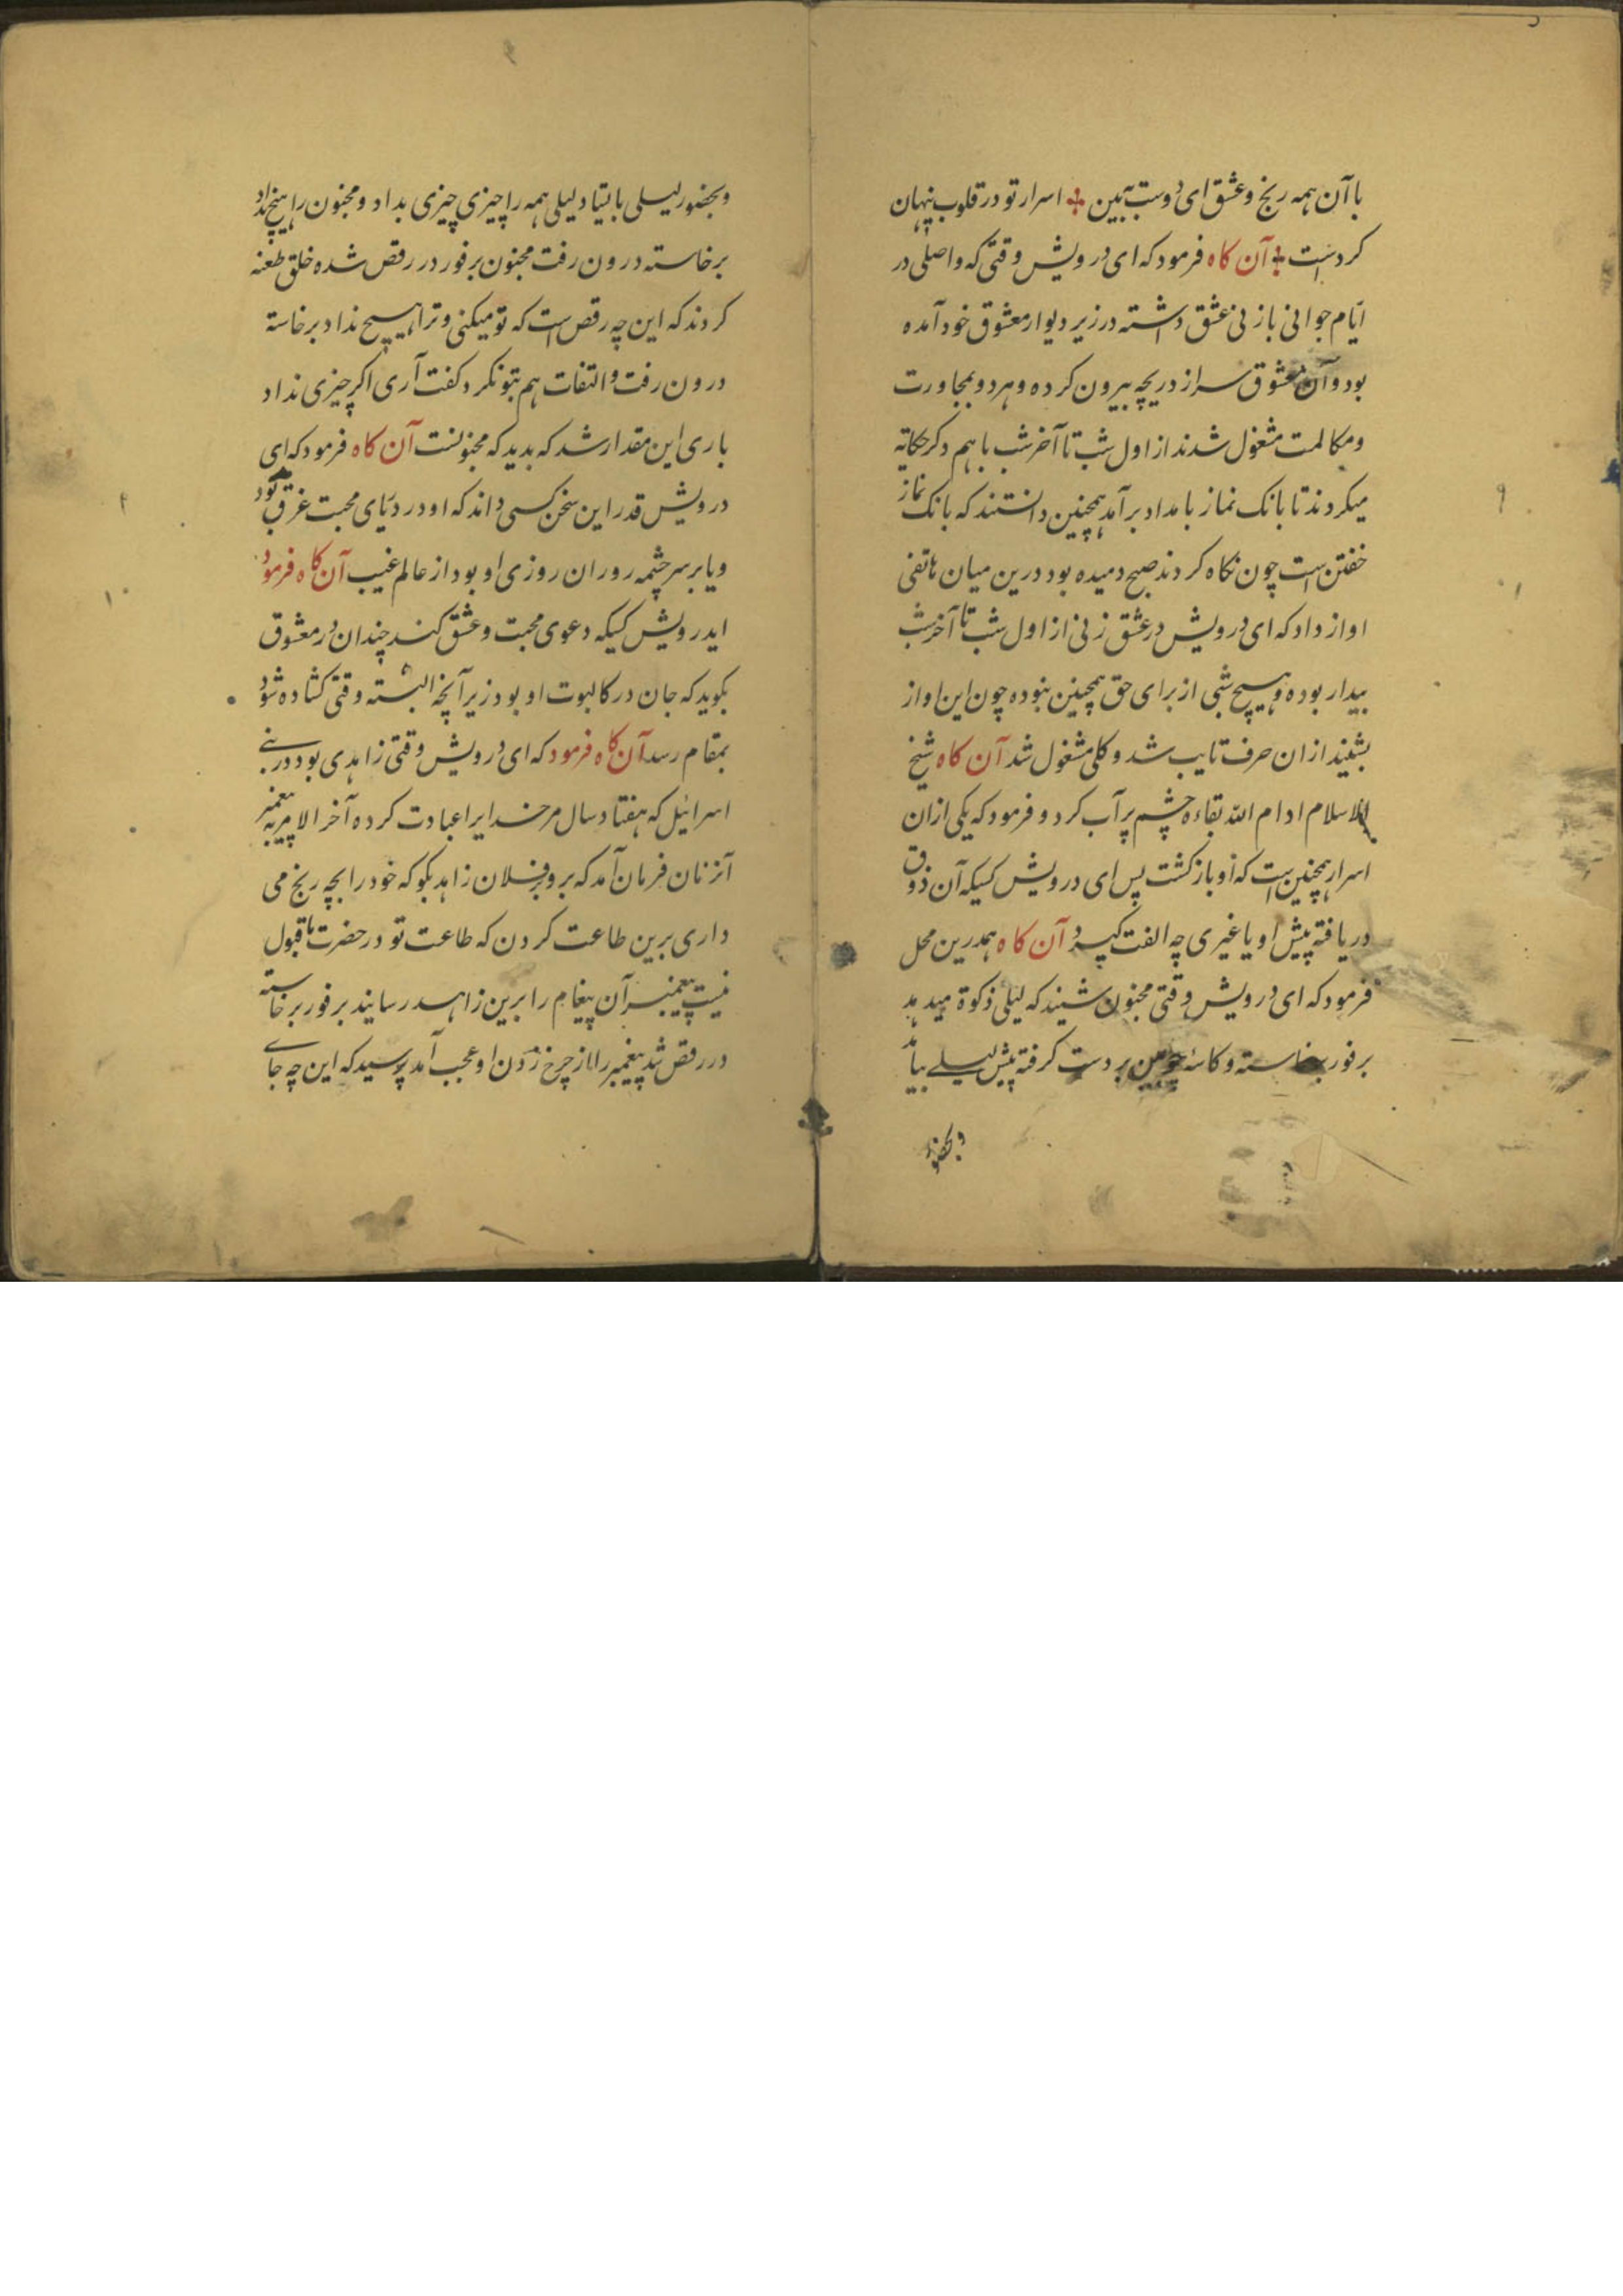 با آن همه رنج و عشق ای دوست ببین اسرار تو در قلوب پنهان
کردست آن کاه فرمود که ای درویش وقتی که واصلی در
ایام جوانی بازنی عشق داشته در زیر دیوار معشوق خود آمده
بود و آن معشوق سر از دریچه بیرون کرده و هر دو بمجاورت
و مکالمت مشغول شدند از اول شب تا آخر شب با هم دکر حکایه
میکردند تا بانک نماز بامداد برآمد همچنین دانستند که بانک نماز
خفتن است چون نکاه کردند صبح دمیده بود درین میان هاتفی
اواز داد که ای درویش در عشق زنی از اول شب تا آخر شب
بیدار بوده و هیچ شبی از برای حق همچنین نبوده چون این اواز
بشنید ازان حرف تایب شد و کلی مشغول شد آن کاه شیخ
الاسلام ادام الله بقاءه چشم پر آب کرد و فرمود که یکی ازان
اسرار همچنین است که او باز کشت پس ای درویش کسیکه آن ذوق
دریافته پیش او یا غیری چه الفت کیرد آن کاه همدرین محل
فرمود که ای درویش وقتی مجنون شنید که لیلی ذکوة میدهد
برفور برخاسته و کاسهٔ چوبین بر دست کرفته پیش لیلے بیامد
و بحضور
و بحضور لیلی بایستاد لیلی همه را چیزی چیزی بداد و مجنون را هیچ نداد
برخاسته درون رفت مجنون برفور در رقص شده خلق طعنه
کردند که این چه رقص است که تو میکنی و ترا هیچ نداد برخاسته
درون رفت و التفات هم بتو نکرد کفت آری اکر چیزی نداد
باری این مقدار شد که بدید که مجنونست آن کاه فرمود که ای
درویش قدر این سخن کسی داند که او در دریای محبت غرق بود
و یا بر سر چشمه روران روزی او بود از عالم غیب آن کاه فرمود
ایدرویش کسیکه دعوی محبت و عشق کند چندان در معشوق
بکوید که جان در کالبوت او بود زیر آنچه البسته وقتی کشاده شود
بمقام رسد آن کاه فرمود که ای درویش وقتی زاهدی بود در بنے
اسرائیل که هفتاد سال مر خدایرا عبادت کرده آخر الامر به پیغمبر
آنزنان فرمان آمد که برو بر فلان زاهد بکو که خود را بچه رنج می
داری برین طاعت کردن که طاعت تو در حضرت ما قبول
نیست پیغمبر آن پیغام را برین زاهد رسانید برفور برخاسته
در رقص شد پیغمبر را از چرخ زدن او عجب آمد پرسید که این چه جاے